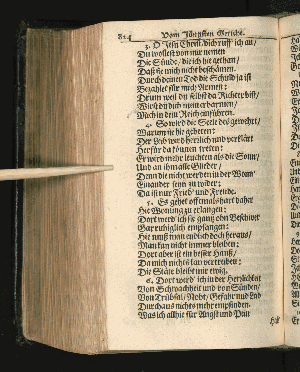 824 Vom Jüngsten Gericht.
3. O Jesu Christ, dich ruff ich an/
Du wollest von mir nemen
Die Sünde/ die ich hie gethan/
Daß sie mich nicht beschämen.
Durch deinen Tod die Schuld ja ist
Bezahlet für mich Armen:
Drum weil du selbst da Richter bist/
Wirst dich mein erbarmen/
Mich in dein Reich einführen.
4. So wird die Seele
Warum sie hie gebeten:
Der Leib wird herrlich und verklärt
Herfür da können treten:
Er werd mehr leuchten als die Sonn/
Und an ihm alle Glieder/
Denn die nicht werden in der Wonn
Einander seyn zu wider:
Da ist nur Fried' und Freude.
5. Es gehet offtmals hart daher
Hie Wonung zu erlangen:
Dort werd' ich ganz ohn Beschwer
Gar ruhiglich empfangen:
Hie muß man endlich doch heraus/
Man kan nicht immer bleiben:
Dort aber ist ein besser Hauß/
Da mich nichts kan vertreiben:
Die Stäte bleibt mir ewig.
6. Dort werd' ich in der Herrlichkeit
Von Schwachheit und von Sünden/
Von Trübsal/ Noht/ Gefahr und Leid
Durchaus nichts mehr empfinden.
Was ich allhie für Angst und Pein